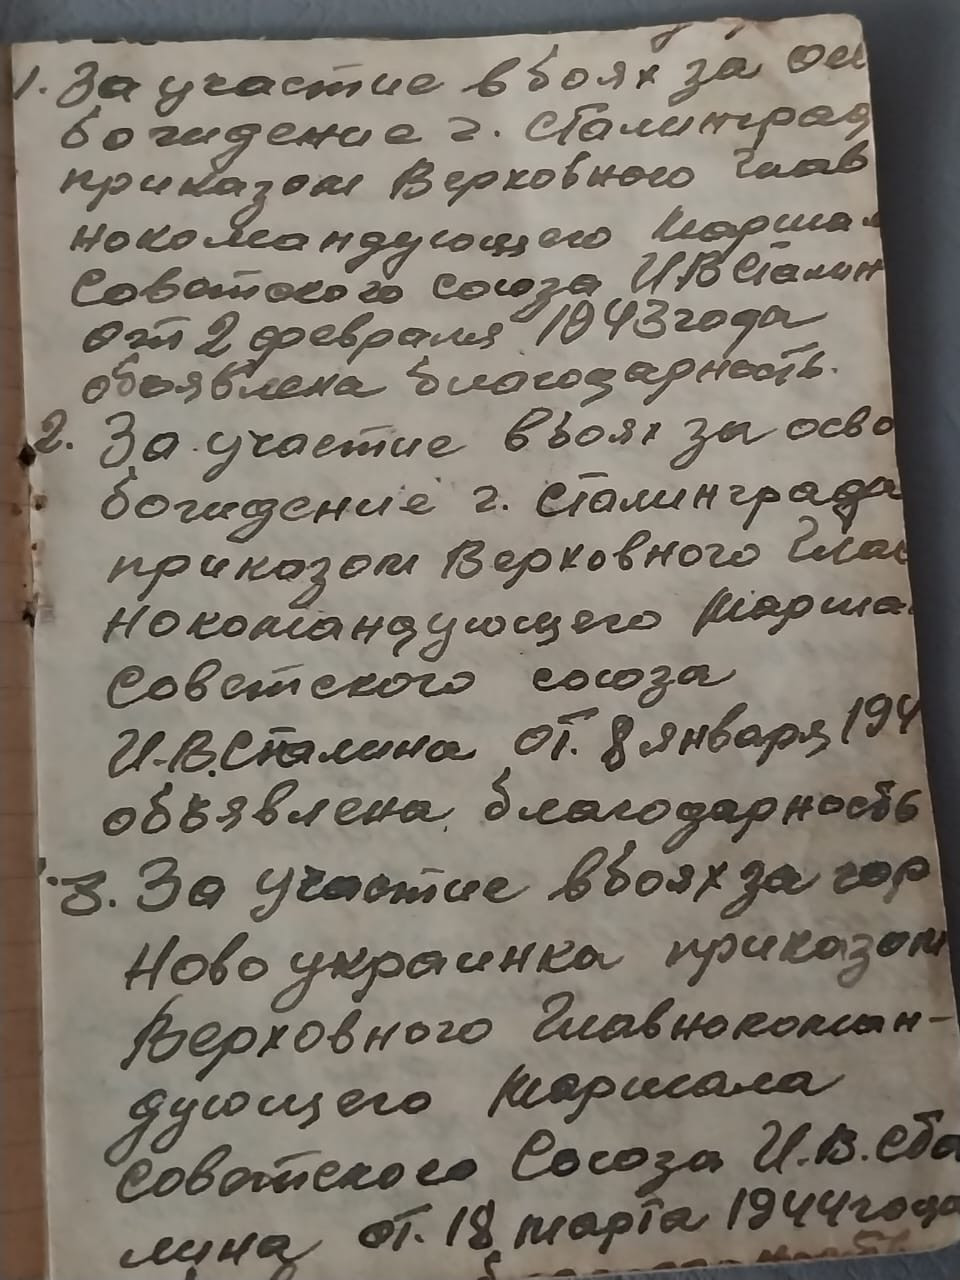 1. За участие в боях за осв
бочидение г. Сталинград
приказом Верховного Глав
нокомандующего Маршал
Советского союза И В Сталин
от 2 февраля 1943 года
объявлена благодарность.
2. За участие в боях зы осво
бочидение г. Сталинграда
приказом Верховного Глав
нокомандующего Марша
Советского союза
И.В.Сталина от. 8 января 194
объявлена благодарность
3. За участие в боях за гор
Новоукраинка приказом
Верховного Главнокоман-
дующего Маршала
Советского Союза И.В.Ста
лина от. 18 марта 1944 года